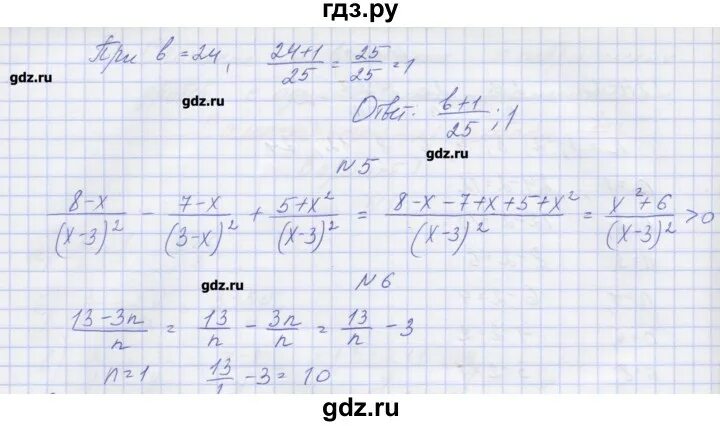 гдз.ру
При b = 24, (24+1)/25 = 25/25 = 1
gdz.ru
gdz.ru
Ответ: (b+1)/25 ; 1
gdz.ru
N 5
(8-x)/(x-3)² - (7-x)/(3-x)² + (5+x²)/(x-3)² = (8-x-7+x+5+x²)/(x-3)² = (x²+6)/(x-3)² > 0
gdz.ru
N 6
(13-3n)/n = 13/n - 3n/n = 13/n - 3
n=1 13/1 - 3 = 10
gdz.ru